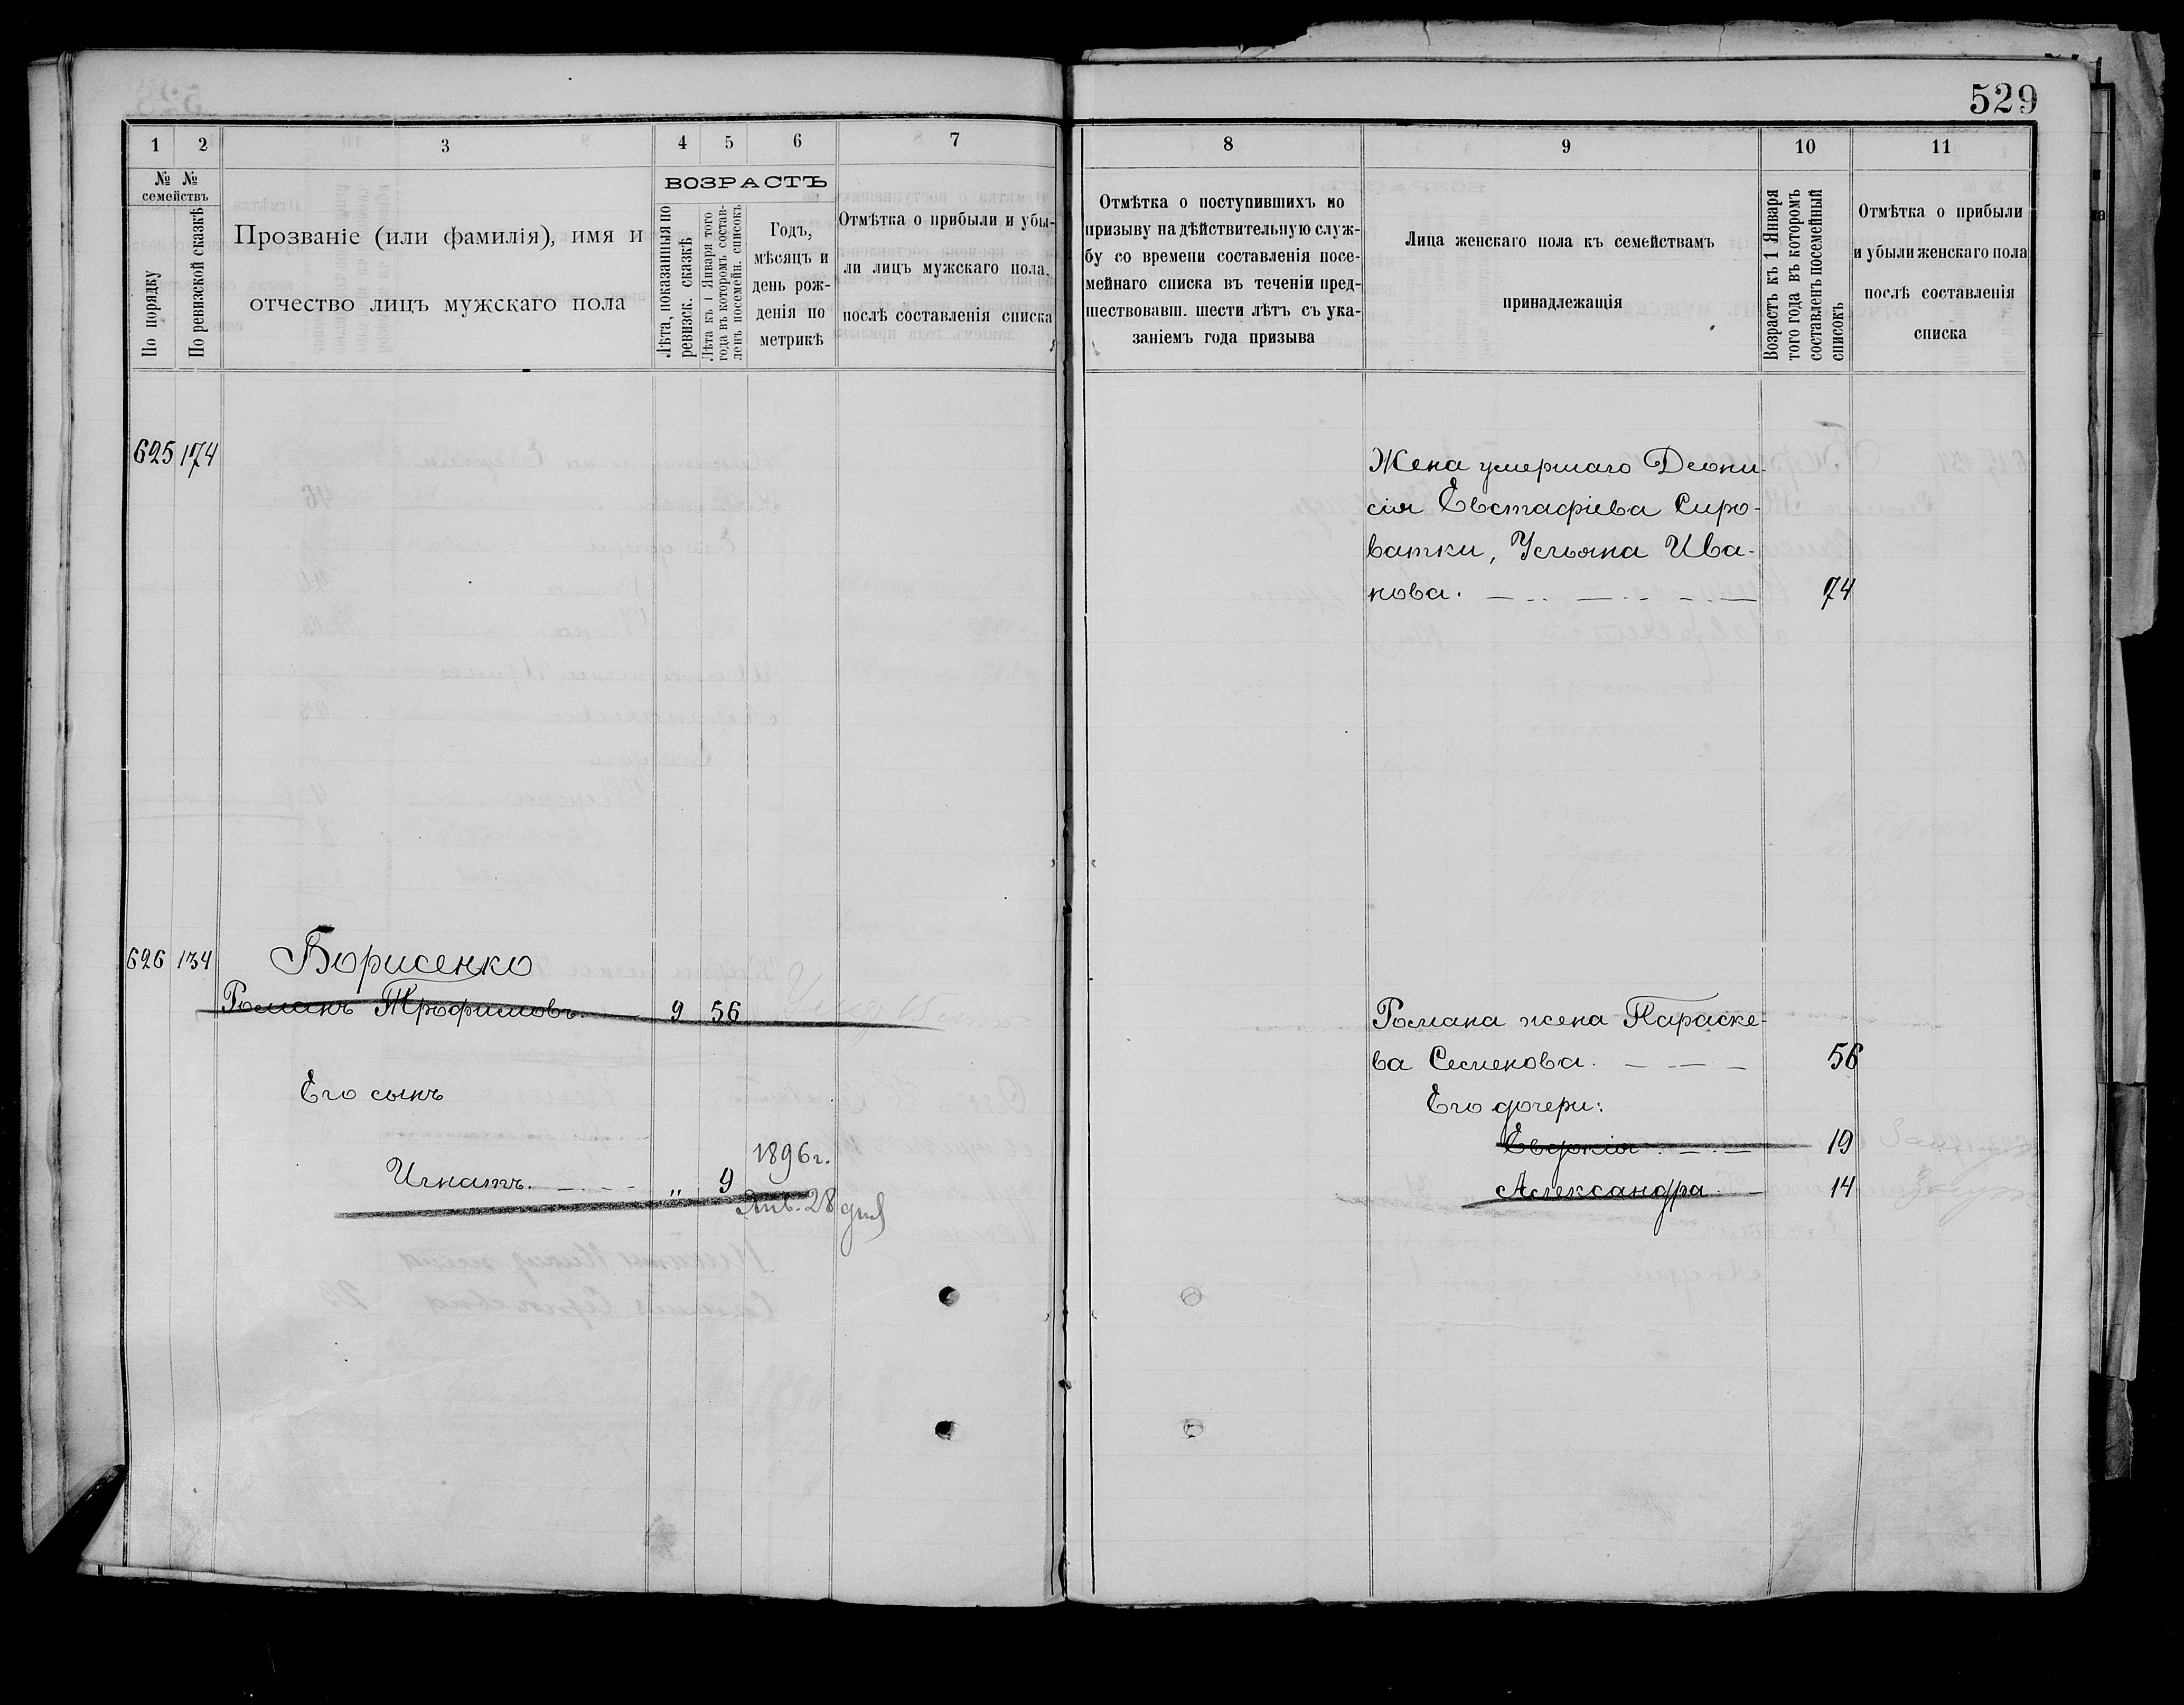 529
1 2 3 4 5 6 7
№ № семействъ
По порядку
По ревизской сказкѣ
Прозваніе (или фамилія), имя и
отчество лицъ мужскаго пола
ВОЗРАСТЪ
Лѣта, показанныя по
ревизск. сказкѣ
Лѣта къ 1 Января того
года въ которомъ состав-
ленъ посемейн. списокъ
Годъ,
мѣсяцъ и
день рож-
денія по
метрикѣ
Отмѣтка о прибыли и убы-
ли лицъ мужскаго пола.
послѣ составленія списка
625 174
626 134 Борисенко
Романъ Трофимовъ. 9 56
Его сынъ
1896 г.
Игнатъ. „ 9
Янв. 28 дня
8 9 10 11
Отмѣтка о поступившихъ по
призыву на дѣйствительную служ-
бу со времени составленія посе-
мейнаго списка въ теченіи пред-
шествовавш. шести лѣтъ съ ука-
заніемъ года призыва
Лица женскаго пола къ семействамъ
принадлежащія
Возрастъ къ 1 Января
того года въ которомъ
составленъ посемейный
списокъ
Отмѣтка о прибыли
и убыли женскаго пола
послѣ составленія
списка
Жена умершаго Деони-
сія Евстафіева Сиро-
ватки, Ульяна Ива-
нова. 74
Романа жена Параске-
ва Семенова. 56
Его дочери:
Евдокія 19
Александра 14